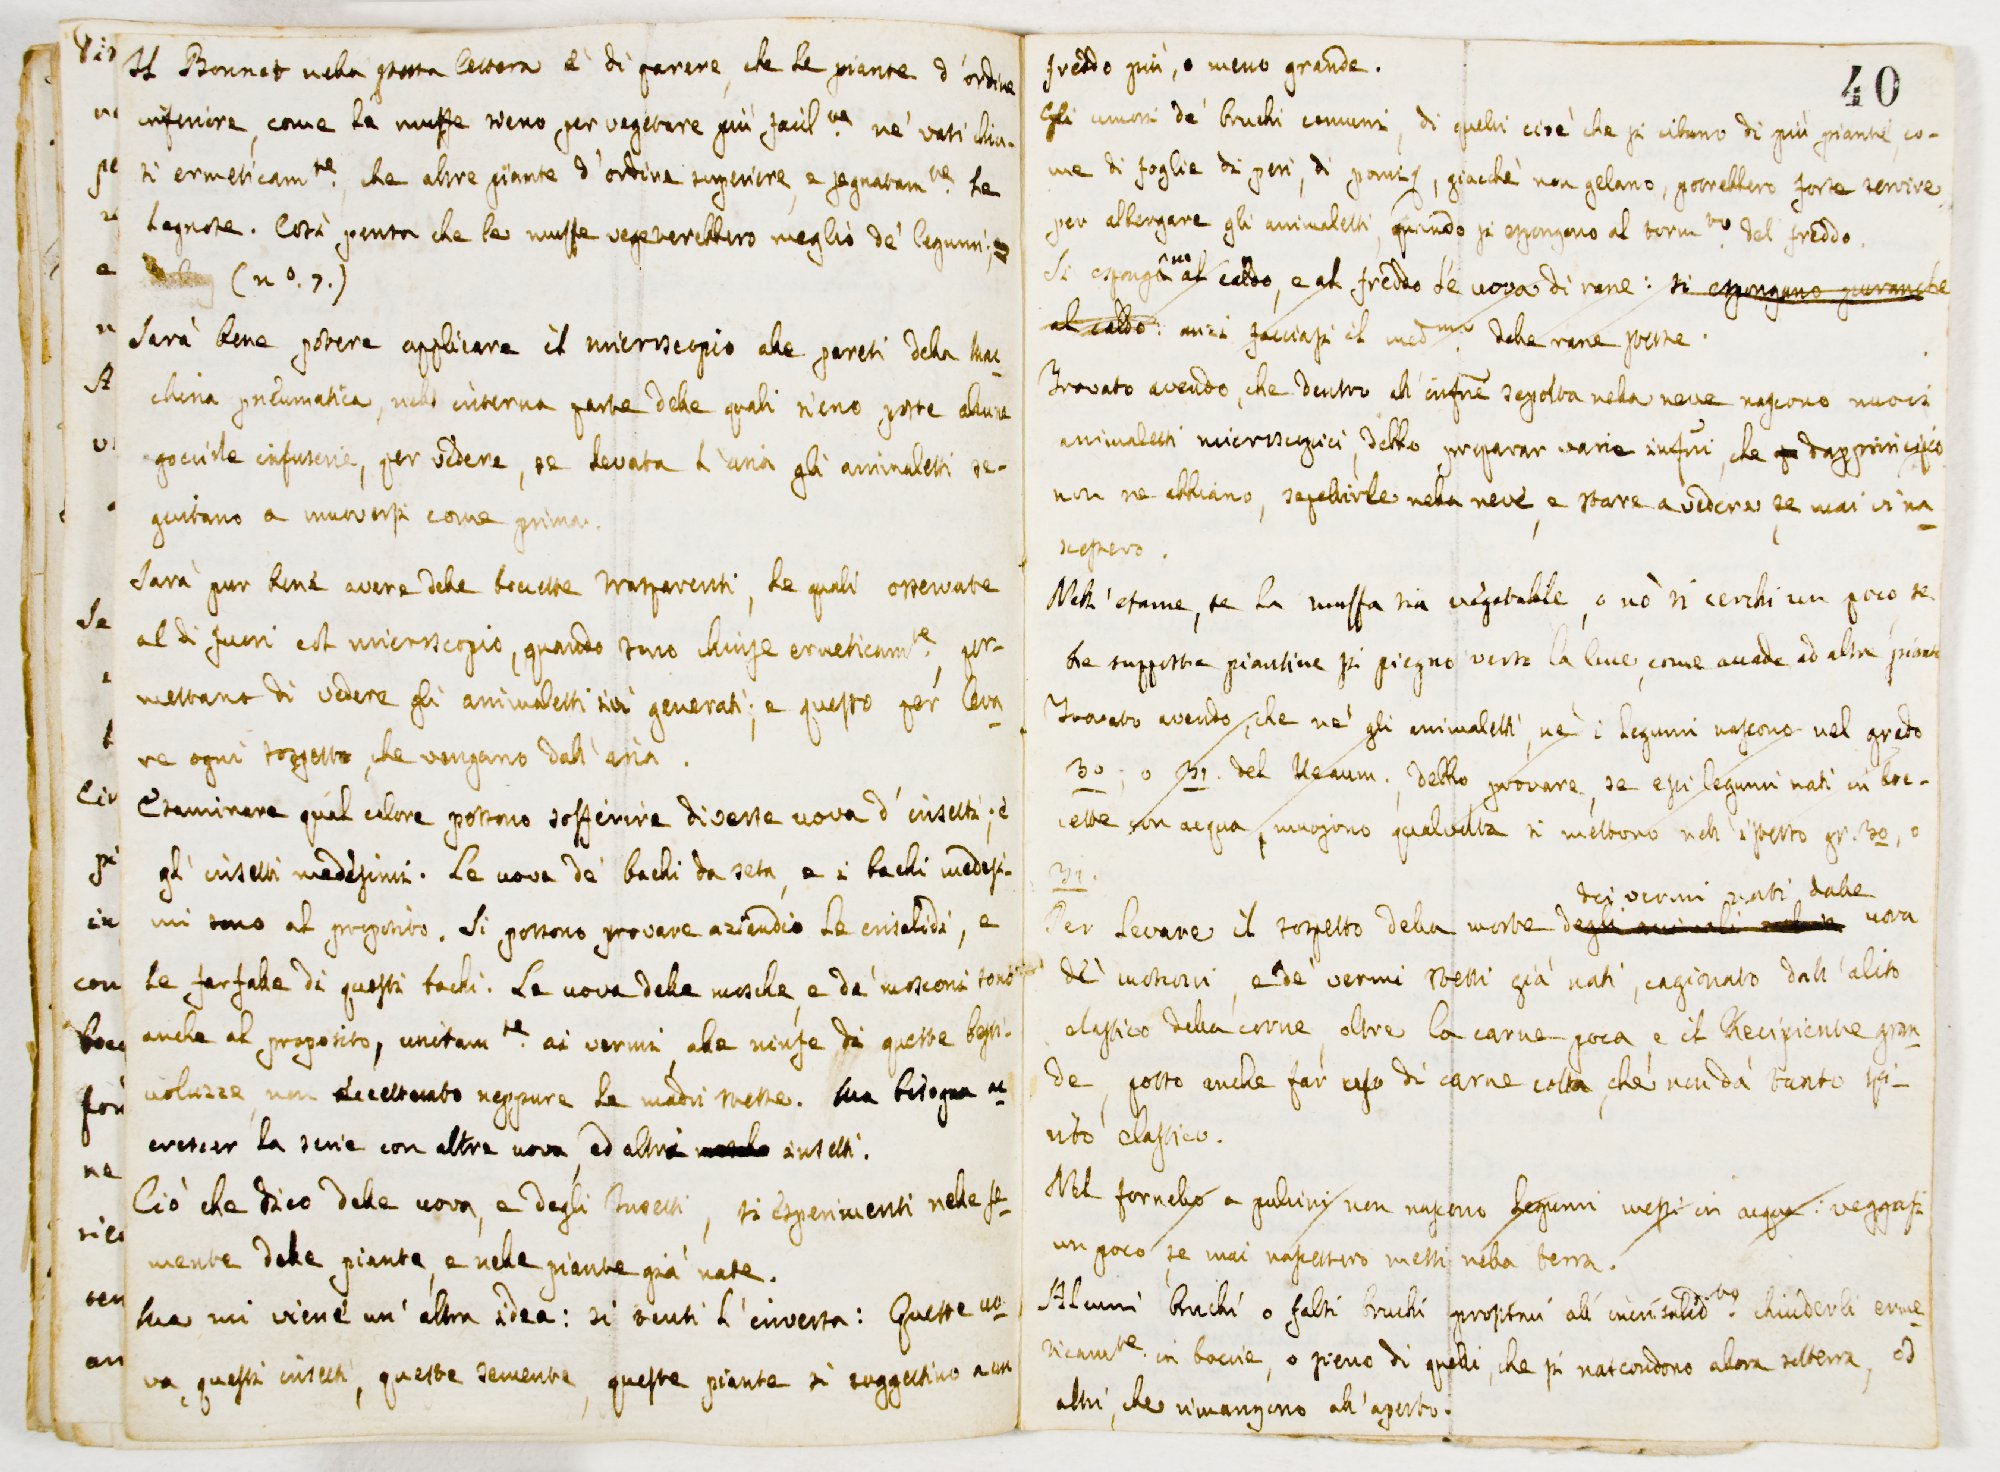 Il Bonnet nella stessa lettera è di parere, che le piante d'ordine
inferiore, come la muffa sieno per vegetare più facil.te ne' vasi chiu-
si ermeticam.te che altre piante d'ordine superiore, e segnatam.te le
legnose. Così pensa che le muffe vegeterebbero meglio de' legumi;
(n°. 7.)
Sarà bene potere applicare il microscopio alle pareti della mac
china pneumatica, nell' interna parte delle quali sieno poste alcune
gocciole infusorie, per vedere, se levata l'aria gli animaletti se-
guitano a muoversi come prima.
Sarà pur bene avere delle boccette trasparenti, le quali osservate
al di fuori col microscopio, quando sono chiuse ermeticam.te, per-
mettano di vedere gli animaletti ivi generati; e questo per leva
re ogni sospetto, che vengano dall'aria.
Esaminare qual calore possono sofferire diverse uova d'insetti; e
gl' insetti medesimi. Le uova de' bachi da seta, e i bachi medesi-
mi sono al proposito. Si possono provare aziandio le crisalidi, e
le farfalle di questi bachi. Le uova delle mosche, e de' mosconi sono
anche al proposito, unitam.te ai vermi, alle ninfe di queste besti-
voluzze, non eccettuato neppure le madri stesse. Ma bisogna ac
crescer la serie con altre uova, ed altri insetti.
Ciò che dico delle uova, e degli Insetti, si esperimenti nelle se
mente delle piante, e nelle piante già nate.
Ma mi viene un'altra idea: si tenti l'inversa: Queste uo
va, questi insetti, queste semente, queste piante si soggettino a un
freddo più, o meno grande.
40
Gli umori de' bruchi comuni, di quelli cioè che si cibano di più piante, co-
me di foglie di peri, di pomi, giacchè non gelano, potrebbero forse servire
per albergare gli animaletti, quando si espongono al torm.to del freddo.
Si espongano al caldo, e al freddo le uova di rane: si espongano puranche
al caldo: anzi facciasi il med.mo delle rane stesse.
Trovato avendo, che dentro all' infne sepolta nella neve nascono nuovi
animaletti microscopici, debbo preparar varie infni, che dapprincipio
non ne abbiano, sepellirle nella neve, e stare a vedere, se mai vi na
scessero.
Nell' esame, se la muffa sia vegetabile, o nò si cerchi un poco, se
le supposte piantine si piegno verso la luce, come accade ad altre piante
Trovato avendo, che nè gli animaletti, nè i legumi nascono nel grado
30, o 31. del Reaum., debbo provare, se essi legumi nati in boc-
cette con acqua, muojono qualvolta si mettono nell' istesso gr. 30, o
31.
dei vermi nati dalle
Per levare il sospetto della morte degli animali uova
de' mosconi, e de' vermi stessi già nati, cagionato dall'alito
elastico della carne, oltre la carne poca, e il Recipiente gran
de, posso anche far uso di carne cotta, che non dà tanto spi-
rito elastico.
Nel fornello a pulcini non nascono legumi messi in acqua: veggasi
un poco, se mai nascessero messi nella terra.
Alcuni bruchi o falsi bruchi prossimi all' incrisalid.to chiuderli erme
ticam.te in boccie, o sieno di quelli, che si nascondono allora sotterra, od
altri, che rimangono all'aperto.